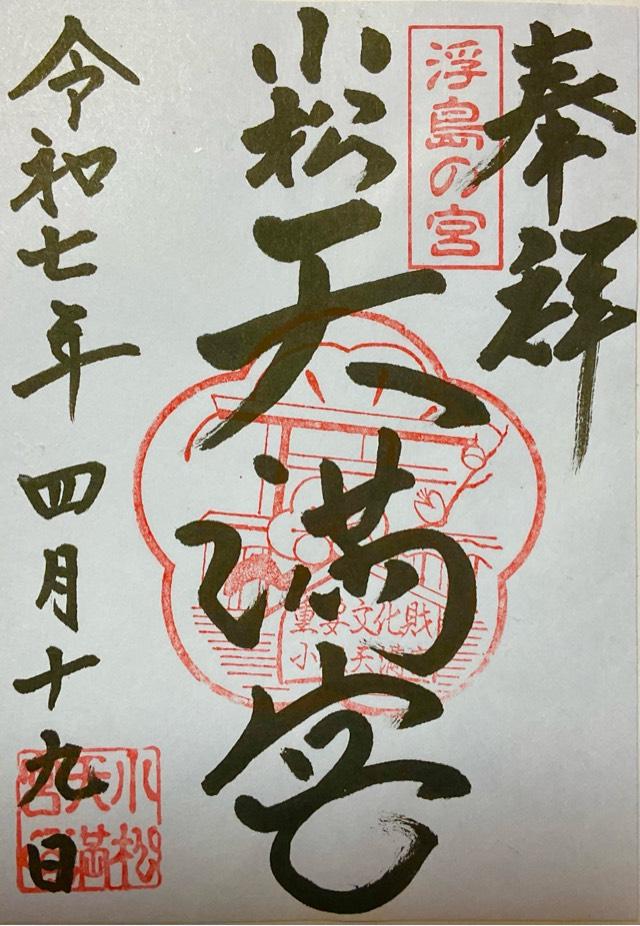 奉拝
浮島の宮
小松天満宮
重要文化財
小松天満宮
令和七年四月十九日
小松
天満
宮